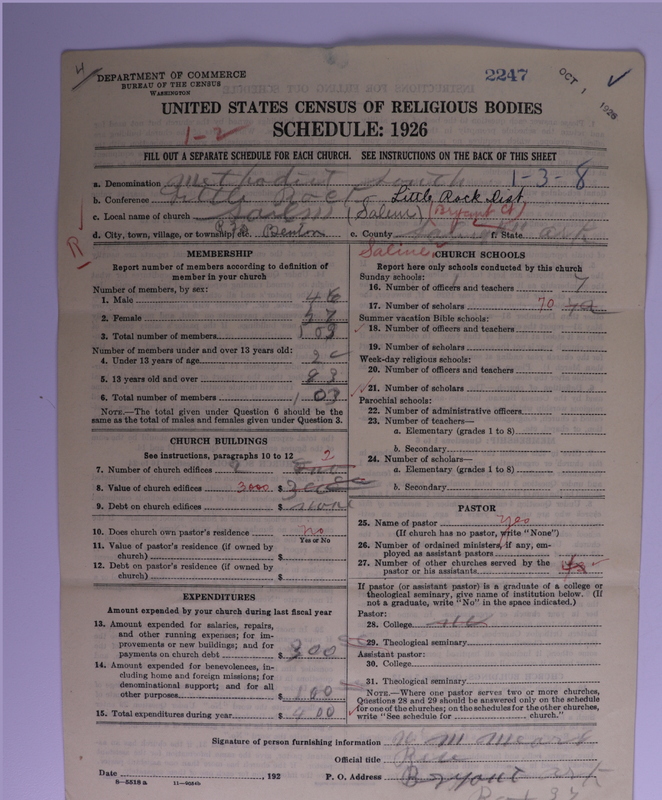 4
DEPARTMENT OF COMMERCE
BUREAU OF THE CENSUS
WASHINGTON
2247
OCT 1 1926
UNITED STATES CENSUS OF RELIGIOUS BODIES
1-2
SCHEDULE: 1926
FILL OUT A SEPARATE SCHEDULE FOR EACH CHURCH. SEE INSTRUCTIONS ON THE BACK OF THIS SHEET
a. Denomination Methodist South 1-3-8
b. Conference Little Rock Little Rock Dist.
c. Local name of church Salem (Salem) (Bryant Ct)
d. City, town, village, or township, etc. Benton e. County Saline f. State Ark
R
Saline
MEMBERSHIP
Report number of members according to definition of
member in your church
Number of members, by sex:
1. Male 46
2. Female 57
3. Total number of members 103
Number of members under and over 13 years old:
4. Under 13 years of age 20
5. 13 years old and over 83
6. Total number of members 103
NOTE.—The total given under Question 6 should be the
same as the total of males and females given under Question 3.
CHURCH BUILDINGS
See instructions, paragraphs 10 to 12 2
7. Number of church edifices
8. Value of church edifices 3000 $ 3000
9. Debt on church edifices $ none
10. Does church own pastor's residence no
Yes or No
11. Value of pastor's residence (if owned by
church) $
12. Debt on pastor's residence (if owned by
church) $
EXPENDITURES
Amount expended by your church during last fiscal year
13. Amount expended for salaries, repairs,
and other running expenses; for im-
provements or new buildings; and for
payments on church debt $ 300
14. Amount expended for benevolences, in-
cluding home and foreign missions; for
denominational support; and for all
other purposes $ 100
15. Total expenditures during year $ 400
CHURCH SCHOOLS
Report here only schools conducted by this church
Sunday schools:
16. Number of officers and teachers 7
17. Number of scholars 70
Summer vacation Bible schools:
18. Number of officers and teachers
19. Number of scholars
Week-day religious schools:
20. Number of officers and teachers
21. Number of scholars
Parochial schools:
22. Number of administrative officers
23. Number of teachers—
a. Elementary (grades 1 to 8)
b. Secondary
24. Number of scholars—
a. Elementary (grades 1 to 8)
b. Secondary
PASTOR
25. Name of pastor yes
(If church has no pastor, write "None")
26. Number of ordained ministers, if any, em-
ployed as assistant pastors
27. Number of other churches served by the
pastor or his assistants
If pastor (or assistant pastor) is a graduate of a college or
theological seminary, give name of institution below. (If
not a graduate, write "No" in the space indicated.)
Pastor:
28. College
29. Theological seminary
Assistant pastor:
30. College
31. Theological seminary
NOTE.—Where one pastor serves two or more churches,
Questions 28 and 29 should be answered only on the schedule
for one of the churches; on the schedules for the other churches,
write "See schedule for church."
Signature of person furnishing information M Mears
Official title
Date , 192 P. O. Address Bryant Ark
8—5518 a